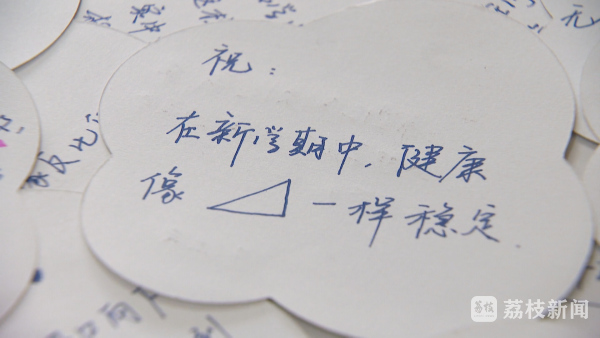 祝：
在新学期中，健康
像△一样稳定.
荔枝新闻